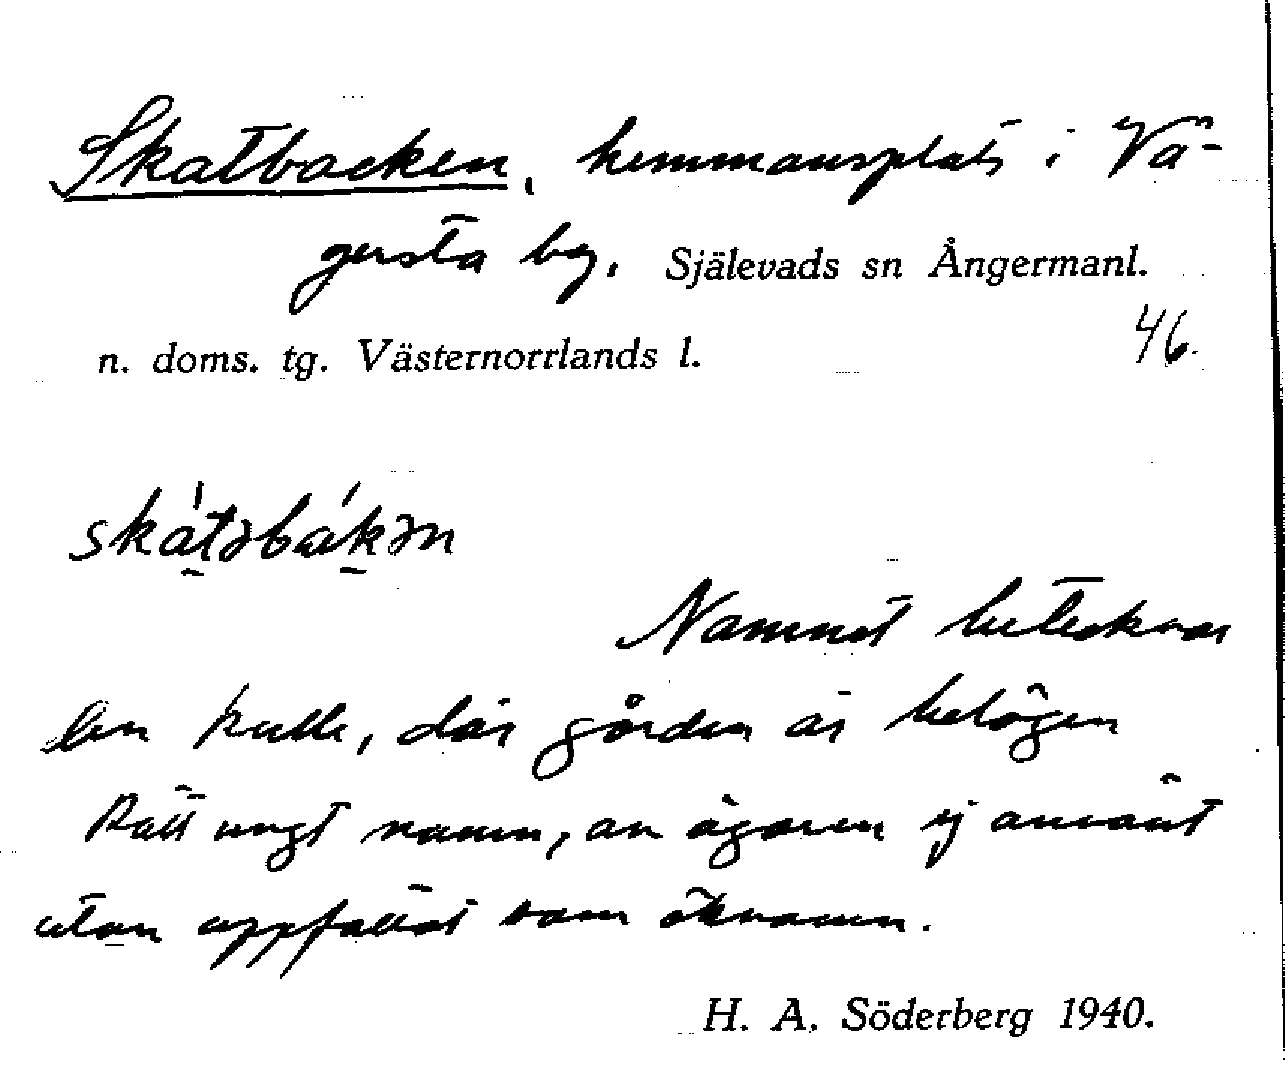 Skatbacken, hemmansplats i Vä-
gersta by. Själevads sn Ångermanl.
n. doms. tg. Västernorrlands l. 46.
skátəbákən
Namnet betecknar
den kulle, där gården är belägen
Rätt ungt namn, av ägaren ej använt
utan uppfattat som öknamn.
H. A. Söderberg 1940.